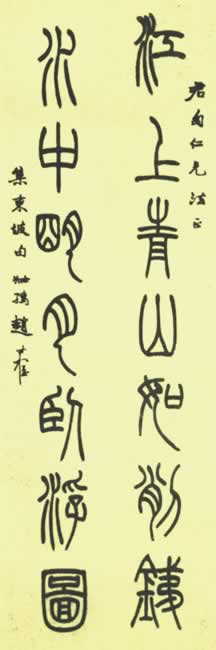 君匋仁兄法正
江上青山如削銕
水中明月臥浮圖
集東坡句 叔孺趙時棡